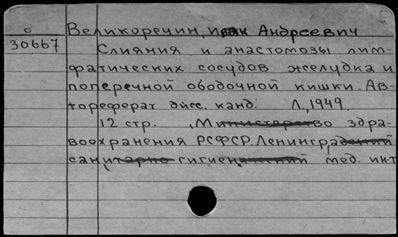 о Великоречин, Иван Андреевич
30667 Слияния и анастомозы лим-
фатических сосудов желудка и
поперечной ободочной кишки. Ав-
тореферат дисс. канд. Л, 1949.
12 стр. , Министерство здра-
воохранения РСФСР. Ленинградский
санитарно-гигиенический мед. ин-т